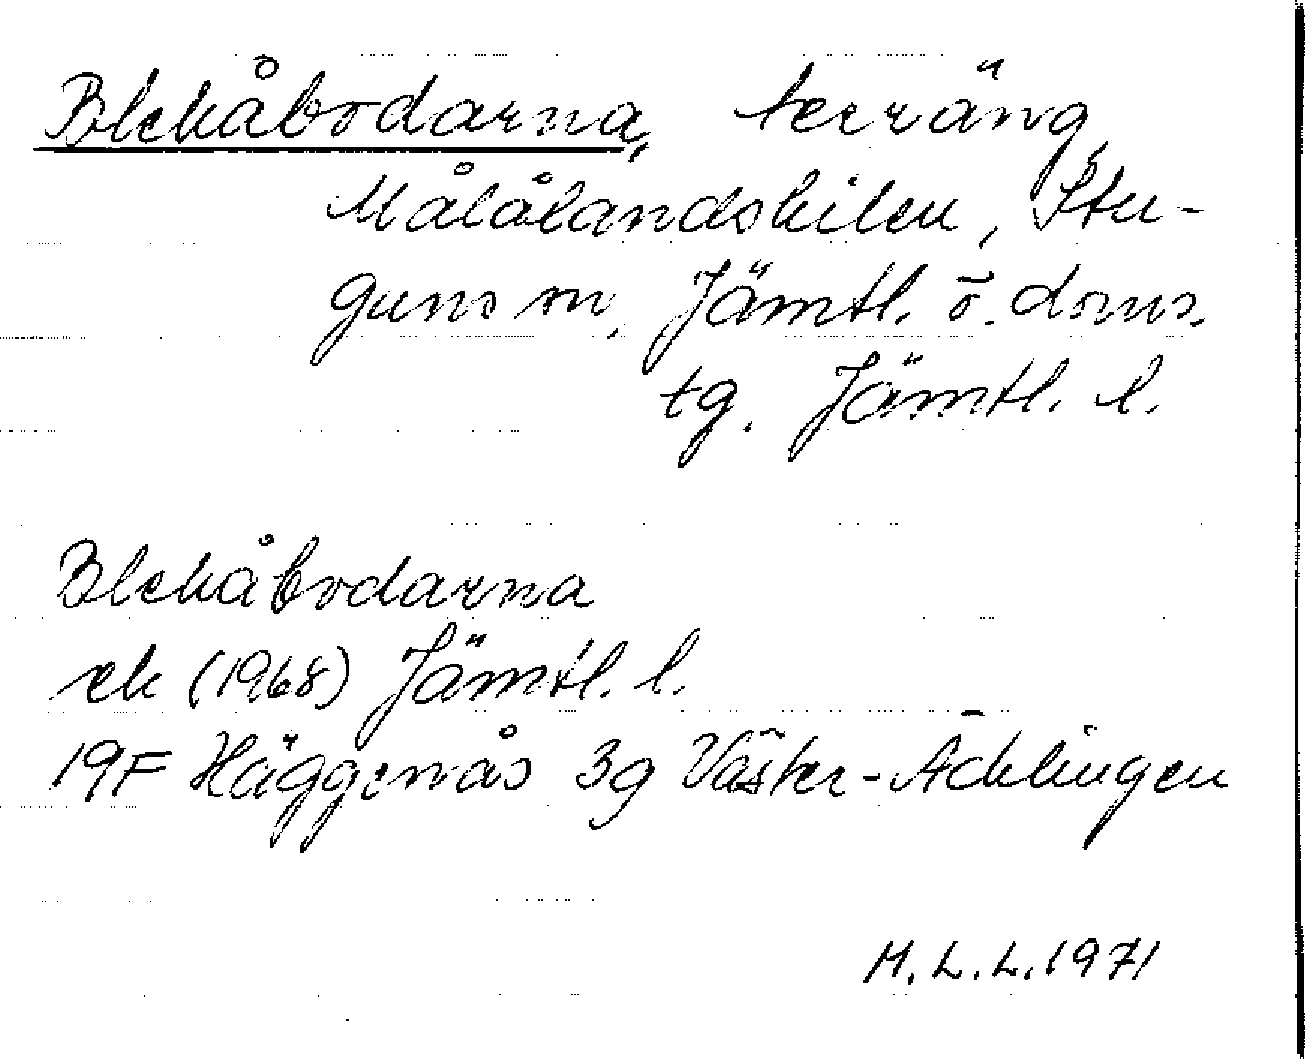 Blekåbodarna, terräng,
Målålandskilen, Stu-
guns sn, Jämtl. ö. doms.
tg. Jämtl. l.
Blekåbodarna
ek (1968) Jämtl. l.
19F Häggenås 3g Väster-Acklingen
M.L.L. 1971